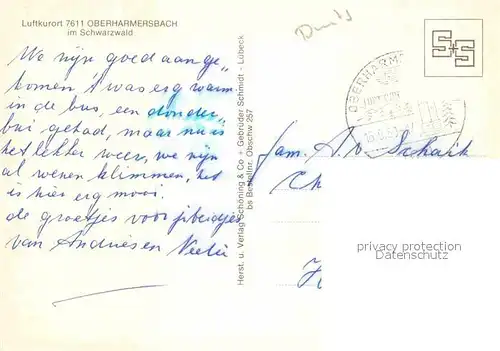 Luftkurort 7611 OBERHARMERSBACH
im Schwarzwald
We zijn goed aange
komen 't was erg warm
in de bus, een donder
bui gehad, maar nu is
het lekker weer, we zijn
al wezen klimmen, het
is hier erg mooi.
de groetjes voor jibeidjes
van Andries en
Herst. u. Verlag Schöning & Co + Gebrüder Schmidt - Lübeck
bs Bestellnr. Obschw 257
S+S
OBERHARM
Fam. A. v. Schaik
privacy protection
www.ansichtskartenversand.com